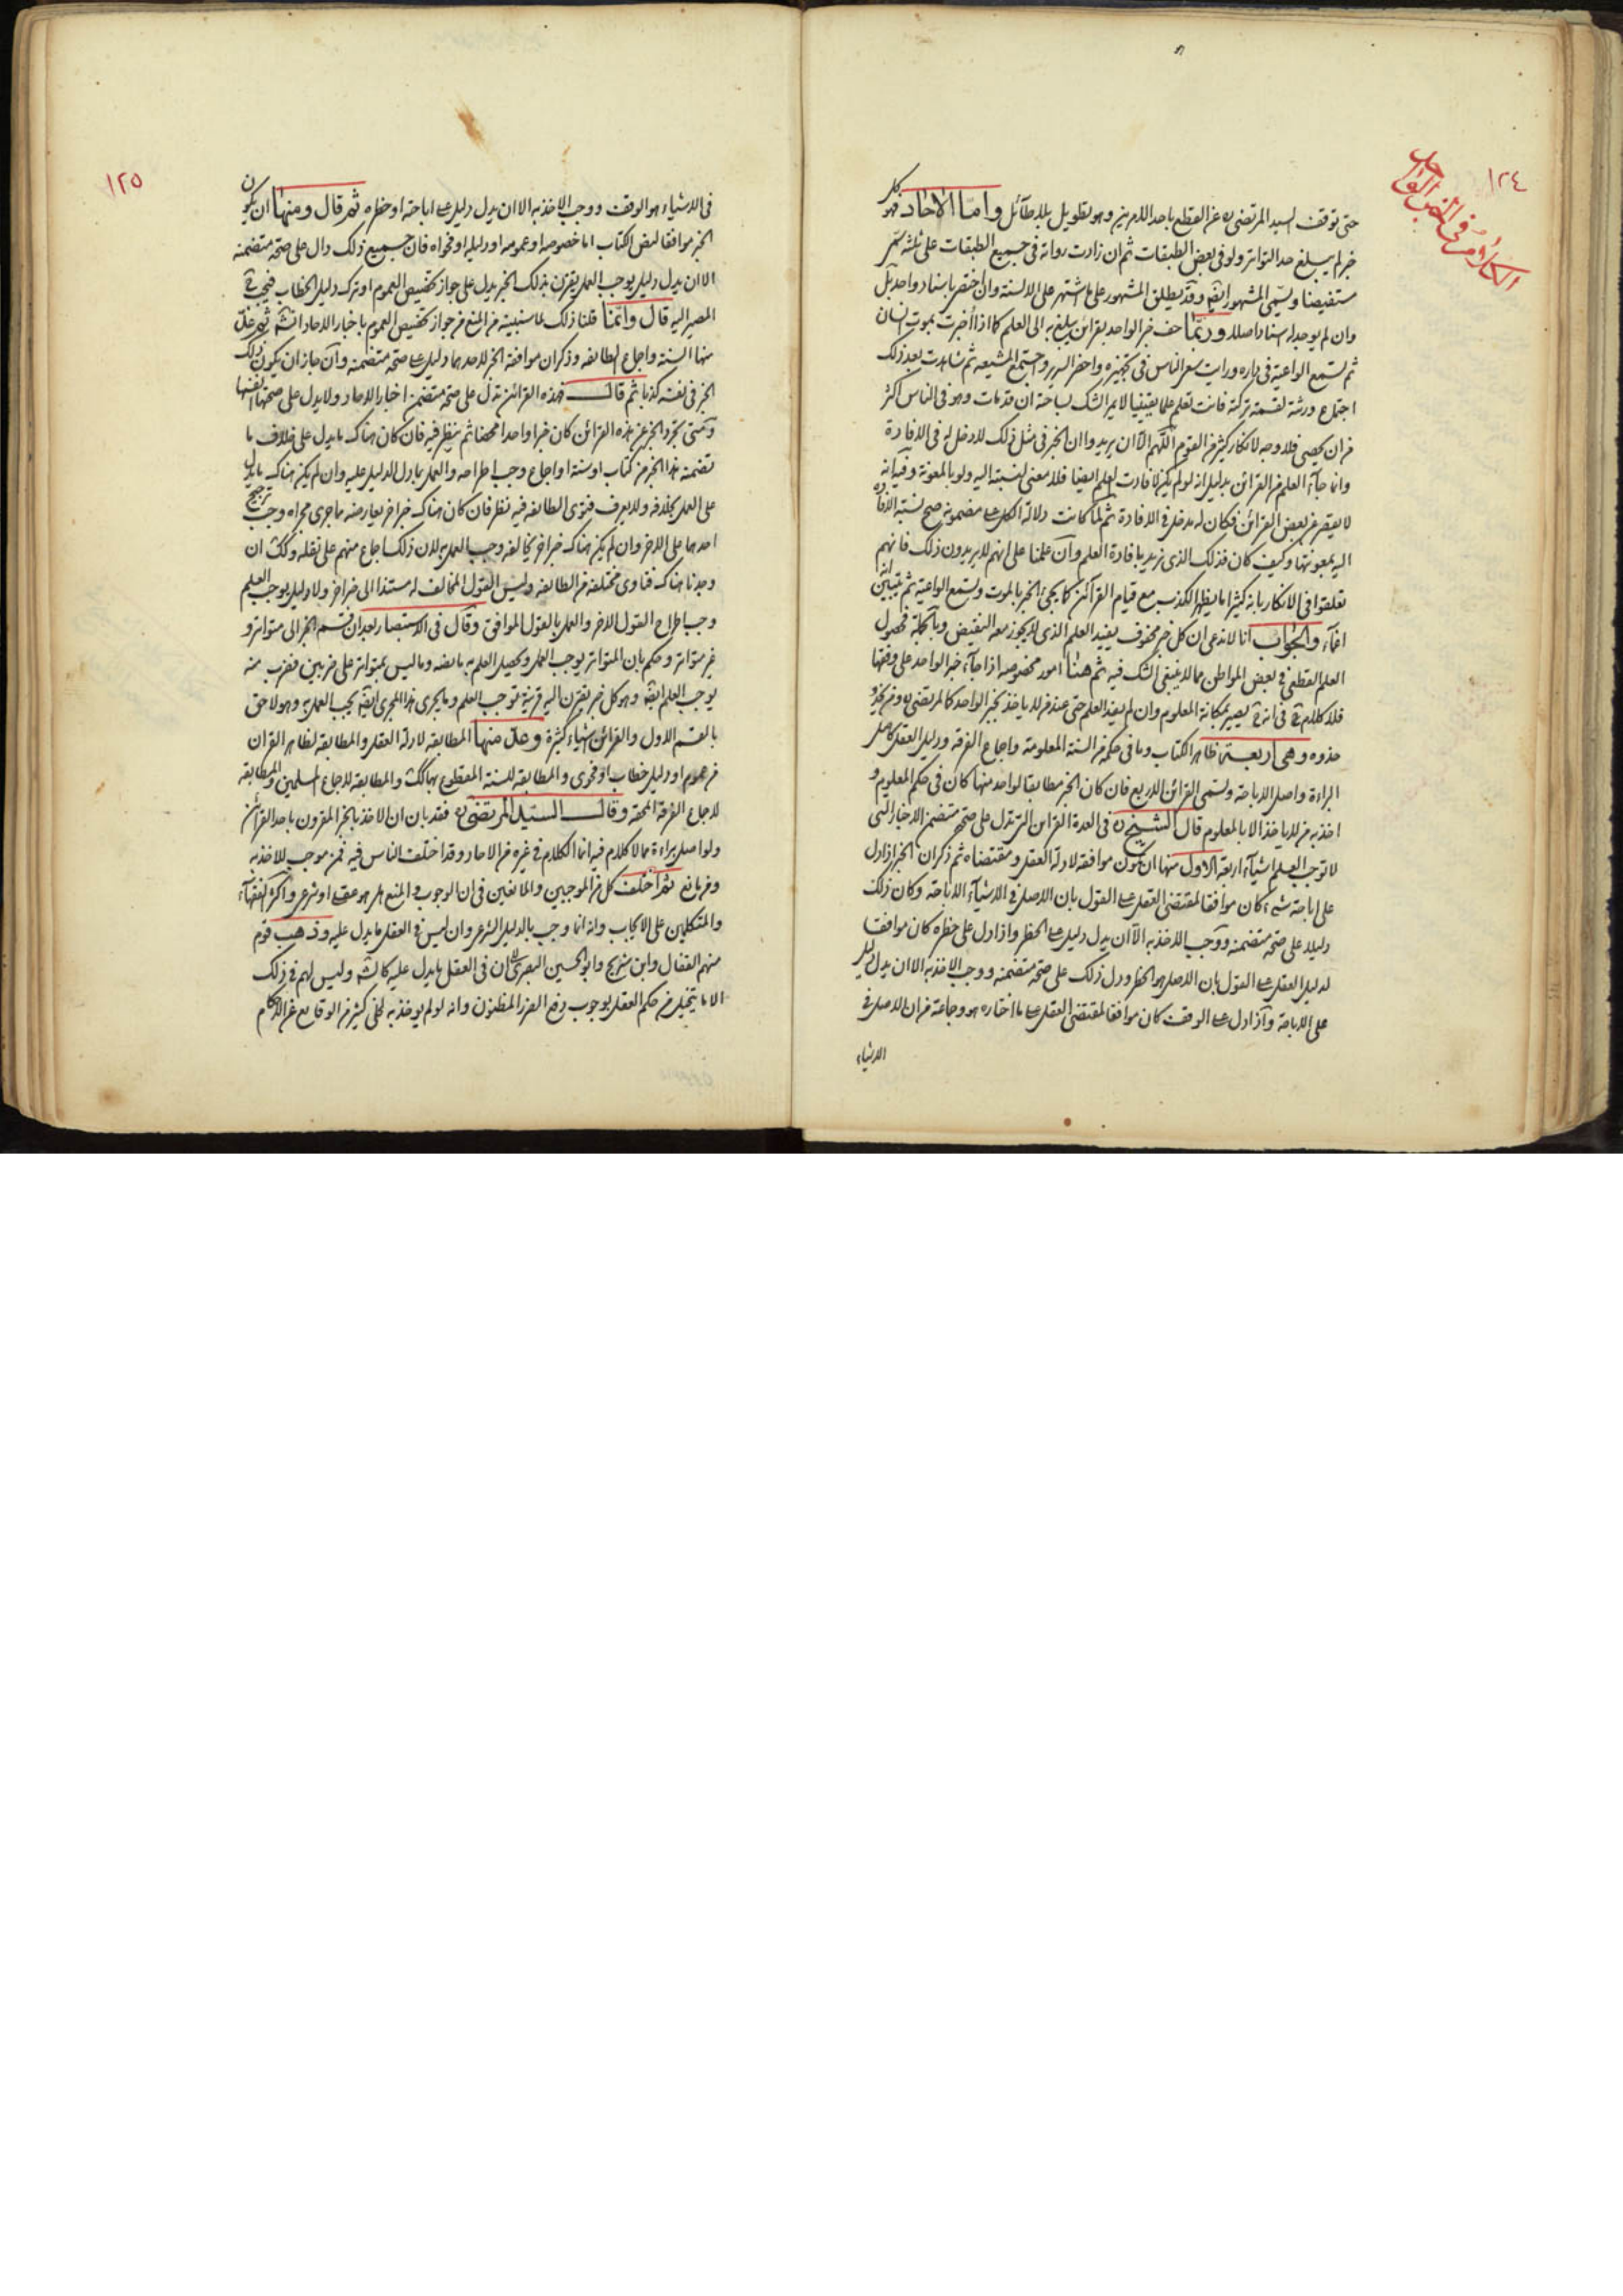 ١٢٤
الكلام في الخبر الواحد
حتى توقف السيد المرتضى ره عن القطع باحد الامرين وهو تطويل بلا طائل واما الاحاد فهو كل
خبر لم يبلغ حد التواتر ولو في بعض الطبقات ثم ان زادت رواته في جميع الطبقات على ثلثه سمى
مستفيضا ويسمى المشهور ايضه وقد يطلق المشهور على ما اشتهر على الالسنة وان اختص باسناد واحد بل
وان لم يوجد له اسناد اصلا وربما حف خبر الواحد بقرائن يبلغ به الى العلم كما اذا اخبرت بموت انسان
ثم تسمع الواعية في داره ورايت سعى الناس في تجهيزه واحضر السرير واجتمع المشيعه ثم شاهدت بعد ذلك
اجتماع ورثته لقسمة تركته فانت تعلم علما يقينيا لا يمر الشك بساحته ان قد مات وهو في الناس اكثر
من ان يحصى فلا وجه لانكار كثير من القوم اللهم الا ان يريدوا ان الخبر في مثل ذلك لا دخل له في الافادة
وانما جاء العلم من القرائن بدليل انه لو لم يكن لافادت العلم ايضا فلا معنى لنسبته اليه ولو بالمعونة وفيه انه
لا يقصر عن بعض القرائن فكان له مدخل في الافادة ثم لما كانت دلالة الكل على مضمونه صح نسبة الافادة
اليه بمعونتها وكيف كان فذلك الذى نريد بافادة العلم وان علمنا على انهم لا يريدون ذلك فانهم
تعلقوا في الانكار بانه كثيرا ما يظهر الكذب مع قيام القرائن كما يجئ الخبر بالموت وتسمع الواعية ثم يتبين انه
اغماء والجواب انا لا ندعى ان كل خبر محفوف يفيد العلم الذى لا يجوز معه النقيض وبالجملة فحصول
العلم القطعى في بعض المواطن مما لا ينبغى الشك فيه ثم هنا امور مخصوصه اذا جاء خبر الواحد على وفقها
فلا كلام في انه يصير بمكانة المعلوم وان لم يفد العلم حتى عند من لا ياخذ بخبر الواحد كالمرتضى ره ومن يحذو
حذوه وهى اربعة ظاهر الكتاب وما في حكمه من السنة المعلومة واجماع الفرقه ودليل العقل كاصل
البراءة واصل الاباحة وتسمى القرائن الاربع فان كان الخبر مطابقا لواحد منها كان في حكم المعلوم و
اخذ به من لا ياخذ الا بالمعلوم قال الشيخ ره في العدة القرائن التى تدل على صحة متضمن الاخبار التى
لا توجب العلم اشياء اربعة الاول منها ان تكون موافقة لادلة العقل ومقتضاه ثم ذكر ان الخبر اذا دل
على اباحة شىء كان موافقا لمقتضى العقل على القول بان الاصل في الاشياء الاباحة وكان ذلك
دليلا على صحة متضمنه ووجب الاخذ به الا ان يدل دليل على الحظر واذا دل على حظره كان موافقا
لدليل العقل على القول بان الاصل هو الحظر ودل ذلك على صحة متضمنه ووجب الاخذ به الا ان يدل دليل
على الاباحة واذا دل على الوقف كان موافقا لمقتضى العقل على ما اختاره هو وجماعة من ان الاصل في
الاشياء
١٢٥
في الاشياء هو الوقف ووجب الاخذ به الا ان يدل دليل على اباحته او حظره ثم قال ومنها ان يكون
الخبر موافقا لنص الكتاب اما خصوصه او عمومه او دليله او فحواه فان جميع ذلك دال على صحة متضمنه
الا ان يدل دليل يوجب العلم يقترن بذلك الخبر يدل على جواز تخصيص العموم او ترك دليل الخطاب فيجب
المصير اليه قال وانما قلنا ذلك لما سنبينه من المنع من جواز تخصيص العموم باخبار الاحاد انتهى ثم جعل
منها السنة واجماع الطايفه وذكر ان موافقة الخبر لاحدهما دليل على صحة متضمنه وان جاز ان يكون ذلك
الخبر في نفسه كذبا ثم قال فهذه القرائن تدل على صحة متضمن اخبار الاحاد ولا يدل على صحتها انفسها
ومتى تجرد الخبر عن هذه القرائن كان خبرا واحدا محضا ثم ينظر فيه فان كان هناك ما يدل على خلاف ما
تضمنه هذا الخبر من كتاب او سنة او اجماع وجب اطراحه والعمل بما دل الدليل عليه وان لم يكن هناك ما يدل
على العمل بخلافه ولا يعرف فتوى الطايفه فيه نظر فان كان هناك خبر اخر يعارضه ما جرى مجراه وجب ترجيح
احدهما على الاخر وان لم يكن هناك خبر اخر يخالفه وجب العمل به لان ذلك اجماع منهم على نقله وكك ان
وجدنا هناك فتاوى مختلفه من الطايفه وليس القول المخالف له مستندا الى خبر اخر ولا دليل يوجب العلم
وجب اطراح القول الاخر والعمل بالقول الموافق وقال في الاستبصار بعد ان قسم الخبر الى متواتر و
غير متواتر وحكم بان المتواتر يوجب العمل ويحصل العلم به ما نصه وما ليس بمتواتر على ضربين فضرب منه
يوجب العلم ايضه وهو كل خبر تقترن اليه قرينة توجب العلم وما يجرى هذا المجرى ايضه يجب العمل به وهو لاحق
بالقسم الاول والقرائن اشياء كثيرة وعد منها المطابقه لادلة العقل والمطابقه لظاهر القران
من عموم او دليل خطاب او فحوى والمطابقه للسنة المقطوع بها كك والمطابقه لاجماع المسلمين والمطابقه
لاجماع الفرقة المحقه وقال السيد المرتضى ره فقد بان ان الاخذ بالخبر المقرون باحد القرائن
ولو اصل براءة مما لا كلام فيه انما الكلام في غيره من الاحاد وقد اختلف الناس فيه فمن موجب للاخذ به
ومن مانع ثم اختلف كل من الموجبين والمانعين في ان الوجوب والمنع هل هو عقلى او شرعى واكثر الفقهاء
والمتكلمين على الايجاب وانه انما وجب بالدليل الشرعى وان ليس في العقل ما يدل عليه وذهب قوم
منهم القفال وابن سريج وابو الحسين البصرى الى ان في العقل ما يدل عليه كالشرع وليس لهم في ذلك
الا ما يتخيل من حكم العقل بوجوب دفع الضرر المظنون وانه لو لم يوخذ به لخلى كثير من الوقايع عن الاحكام